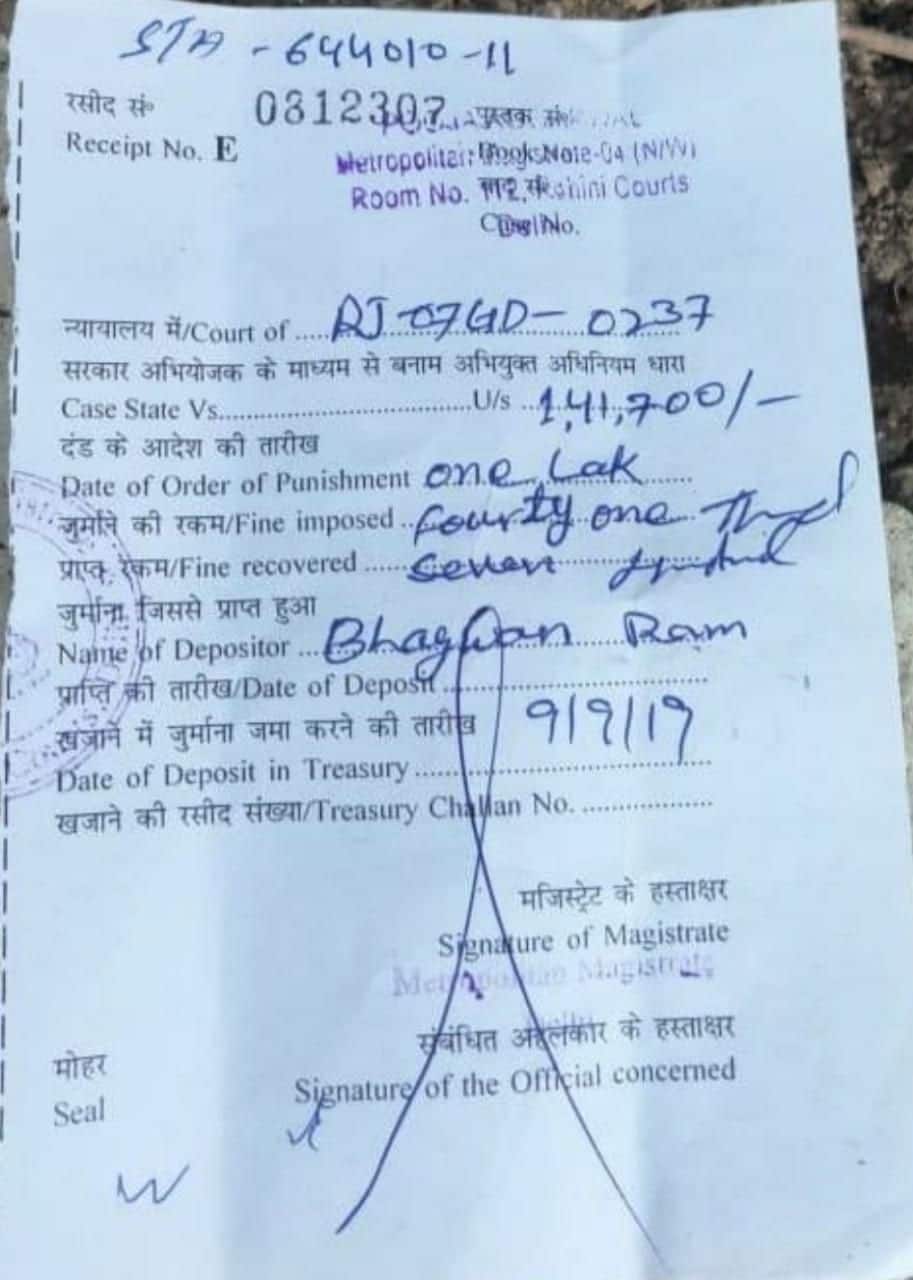 STA - 644010-11
रसीद सं॰ 0312307 पुस्तक सं॰
Receipt No. E
Metropolitan Book Note-04 (N/W)
Room No. 112, Rohini Courts
Delhi No.
न्यायालय में/Court of ..... RJ-07GD- 0237
सरकार अभियोजक के माध्यम से बनाम अभियुक्त अधिनियम धारा
Case State Vs...................................U/s .. 1,41,700/-
दंड के आदेश की तारीख
Date of Order of Punishment one Lak
जुर्माने की रकम/Fine imposed .. fourty one
प्राप्त रकम/Fine recovered ...... seven
जुर्माना जिससे प्राप्त हुआ
Name of Depositor ... Bhagwan Ram
प्राप्ति की तारीख/Date of Deposit
खजाने में जुर्माना जमा करने की तारीख 9/9/19
Date of Deposit in Treasury
खजाने की रसीद संख्या/Treasury Challan No.
मजिस्ट्रेट के हस्ताक्षर
Signature of Magistrate
Metropolitan Magistrate
संबंधित अहलकार के हस्ताक्षर
मोहर
Signature of the Official concerned
Seal